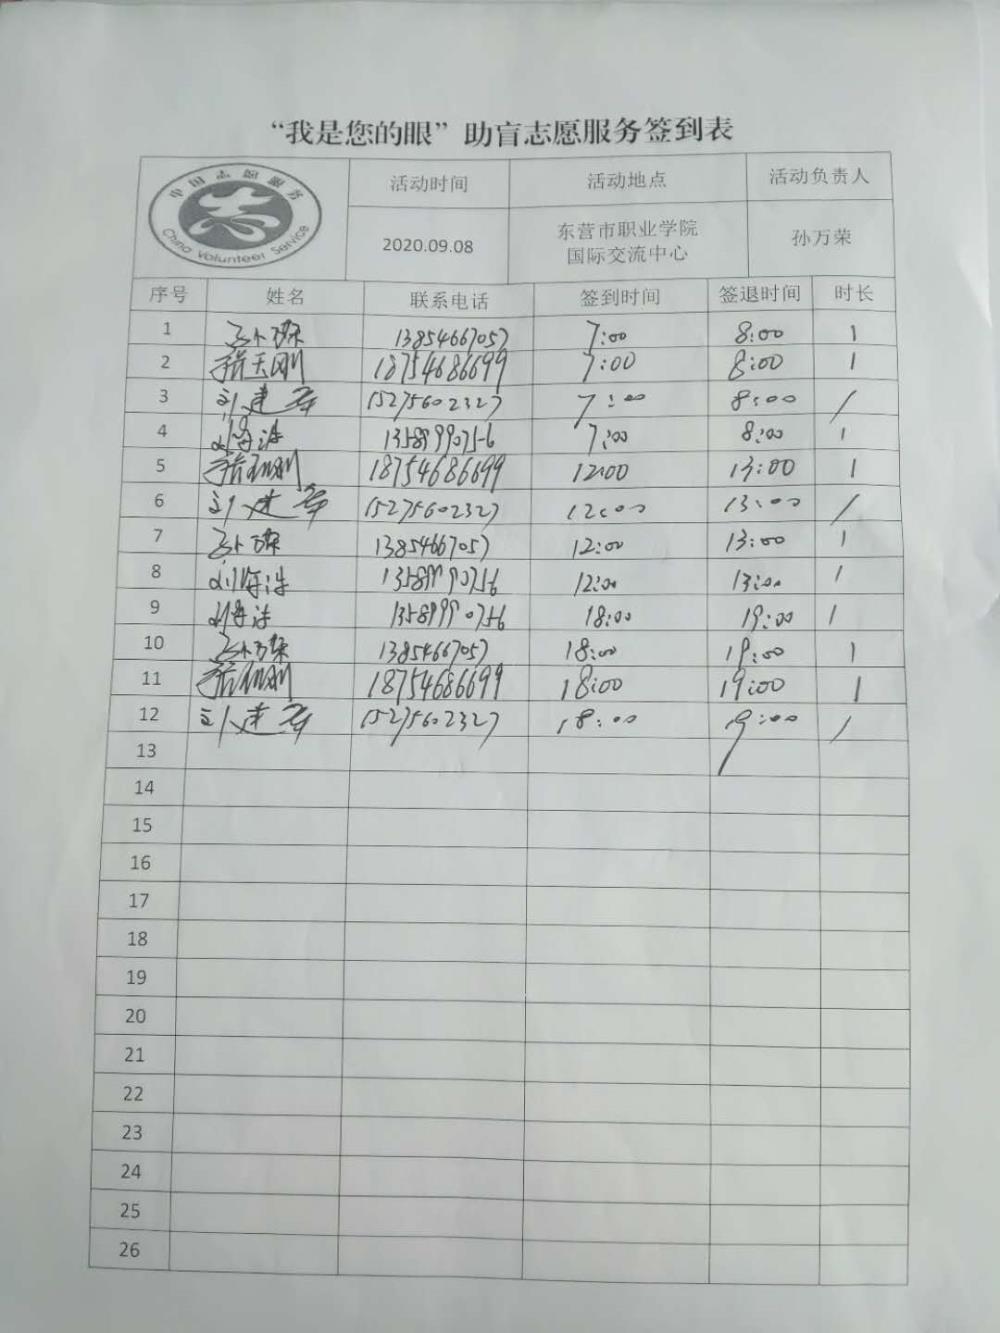 “我是您的眼”助盲志愿服务签到表
中国志愿服务
China Volunteer Service
活动时间 活动地点 活动负责人
2020.09.08 东营市职业学院 孙万荣
国际交流中心
序号 姓名 联系电话 签到时间 签退时间 时长
1 13854667057 7:00 8:00 1
2 18754686699 7:00 8:00 1
3 刘建 15275602327 7:00 8:00 1
4 刘海洁 13589990756 7:00 8:00 1
5 18754686699 12:00 13:00 1
6 刘建 15275602327 12:00 13:00 1
7 13854667057 12:00 13:00 1
8 刘海洁 13589990756 12:00 13:00 1
9 刘海洁 13589990756 18:00 19:00 1
10 13854667057 18:00 19:00 1
11 18754686699 18:00 19:00 1
12 刘建 15275602327 18:00 19:00 1
13
14
15
16
17
18
19
20
21
22
23
24
25
26